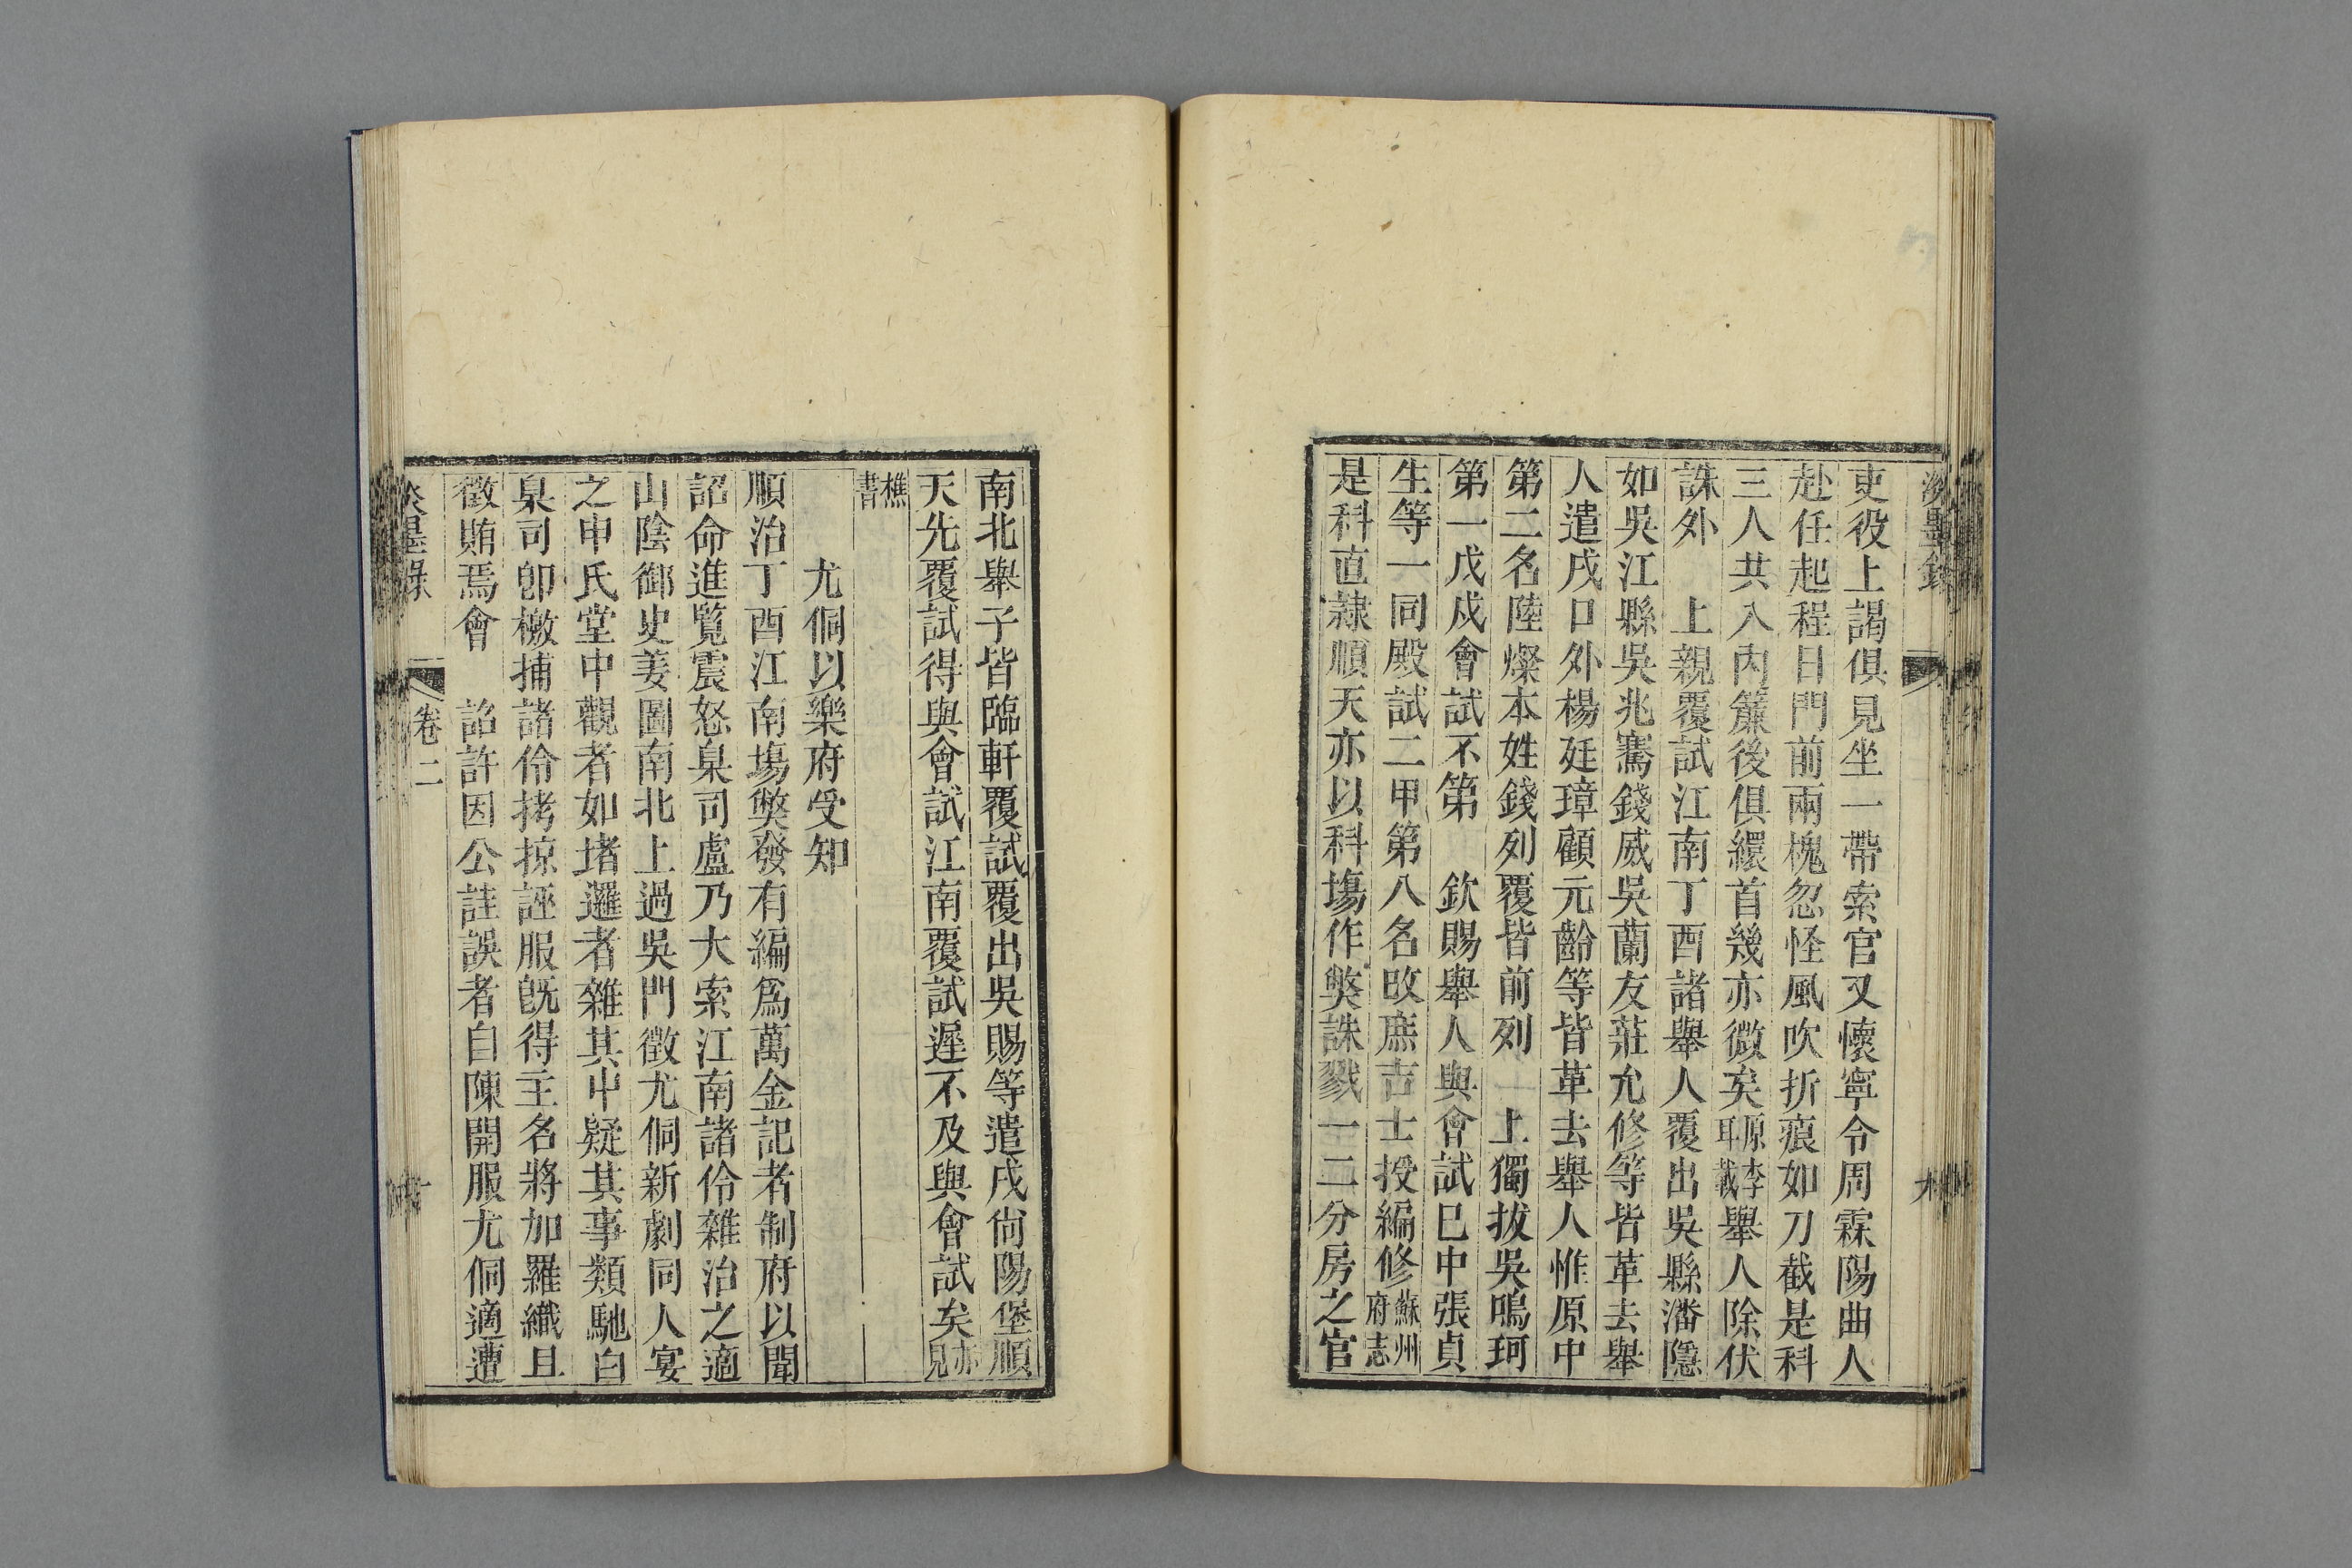 吏役上謁俱見坐一帶索官又懷寧令周霖陽曲人
赴任起程日門前兩槐忽怪風吹折痕如刀截是科
三人共入內簾後俱繯首幾亦微矣原李耳載舉人除伏
誅外　上親覆試江南丁酉諸舉人覆出吳縣潘隱
如吳江縣吳兆騫錢威吳蘭友莊允修等皆革去舉
人遣戍口外楊廷璋顧元齡等皆革去舉人惟原中
第二名陸燦本姓錢列覆皆前列　上獨拔吳鳴珂
第一戊戍會試不第　欽賜舉人與會試巳中張貞
生等一同殿試二甲第八名攺庶吉士授編修蘇州府志
是科直隸順天亦以科塲作獘誅戮一二分房之官
南北舉子皆臨軒覆試覆出吳賜等遣戍尙陽堡順
天先覆試得與會試江南覆試遲不及與會試矣亦見
樵書
尤侗以樂府受知
順治丁酉江南塲獘發有編爲萬金記者制府以聞
詔命進覽震怒臬司盧乃大索江南諸伶雜治之適
山陰御史姜圖南北上過吳門徵尤侗新劇同人宴
之申氏堂中觀者如堵邏者雜其中疑其事類馳白
臬司卽檄捕諸伶拷掠誣服旣得主名將加羅織且
徵賄焉會　詔許因公詿誤者自陳開服尤侗適遭
卷二